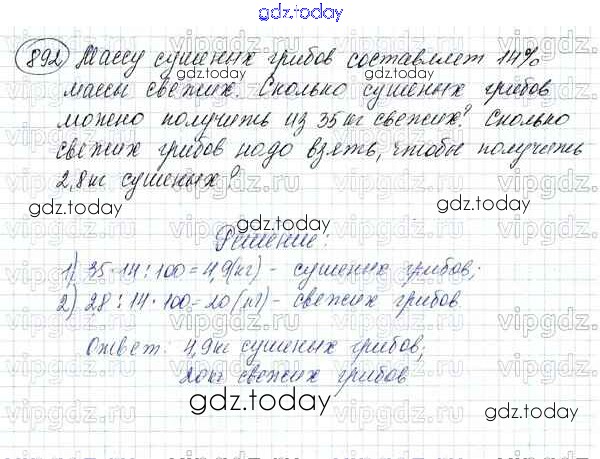 gdz.today
892) Массу сушеных грибов составляет 14%
массы свежих. Сколько сушеных грибов
можно получить из 35 кг свежих? Сколько
свежих грибов надо взять, чтобы получить
2,8 кг сушеных?
Решение:
1) 35·14:100=4,9(кг) - сушеных грибов;
2) 28:14·100=20(кг) - свежих грибов
Ответ: 4,9кг сушеных грибов,
20кг свежих грибов
gdz.today